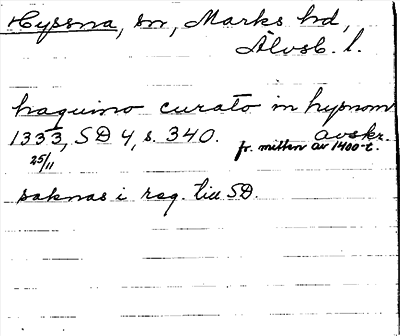 Hyssna, sn, Marks hd,
Älvsb. l.
haquino curato in hypnom
1333, SD 4, s. 340. avskr.
25/11 fr. mitten av 1400-t.
saknas i reg. till SD.